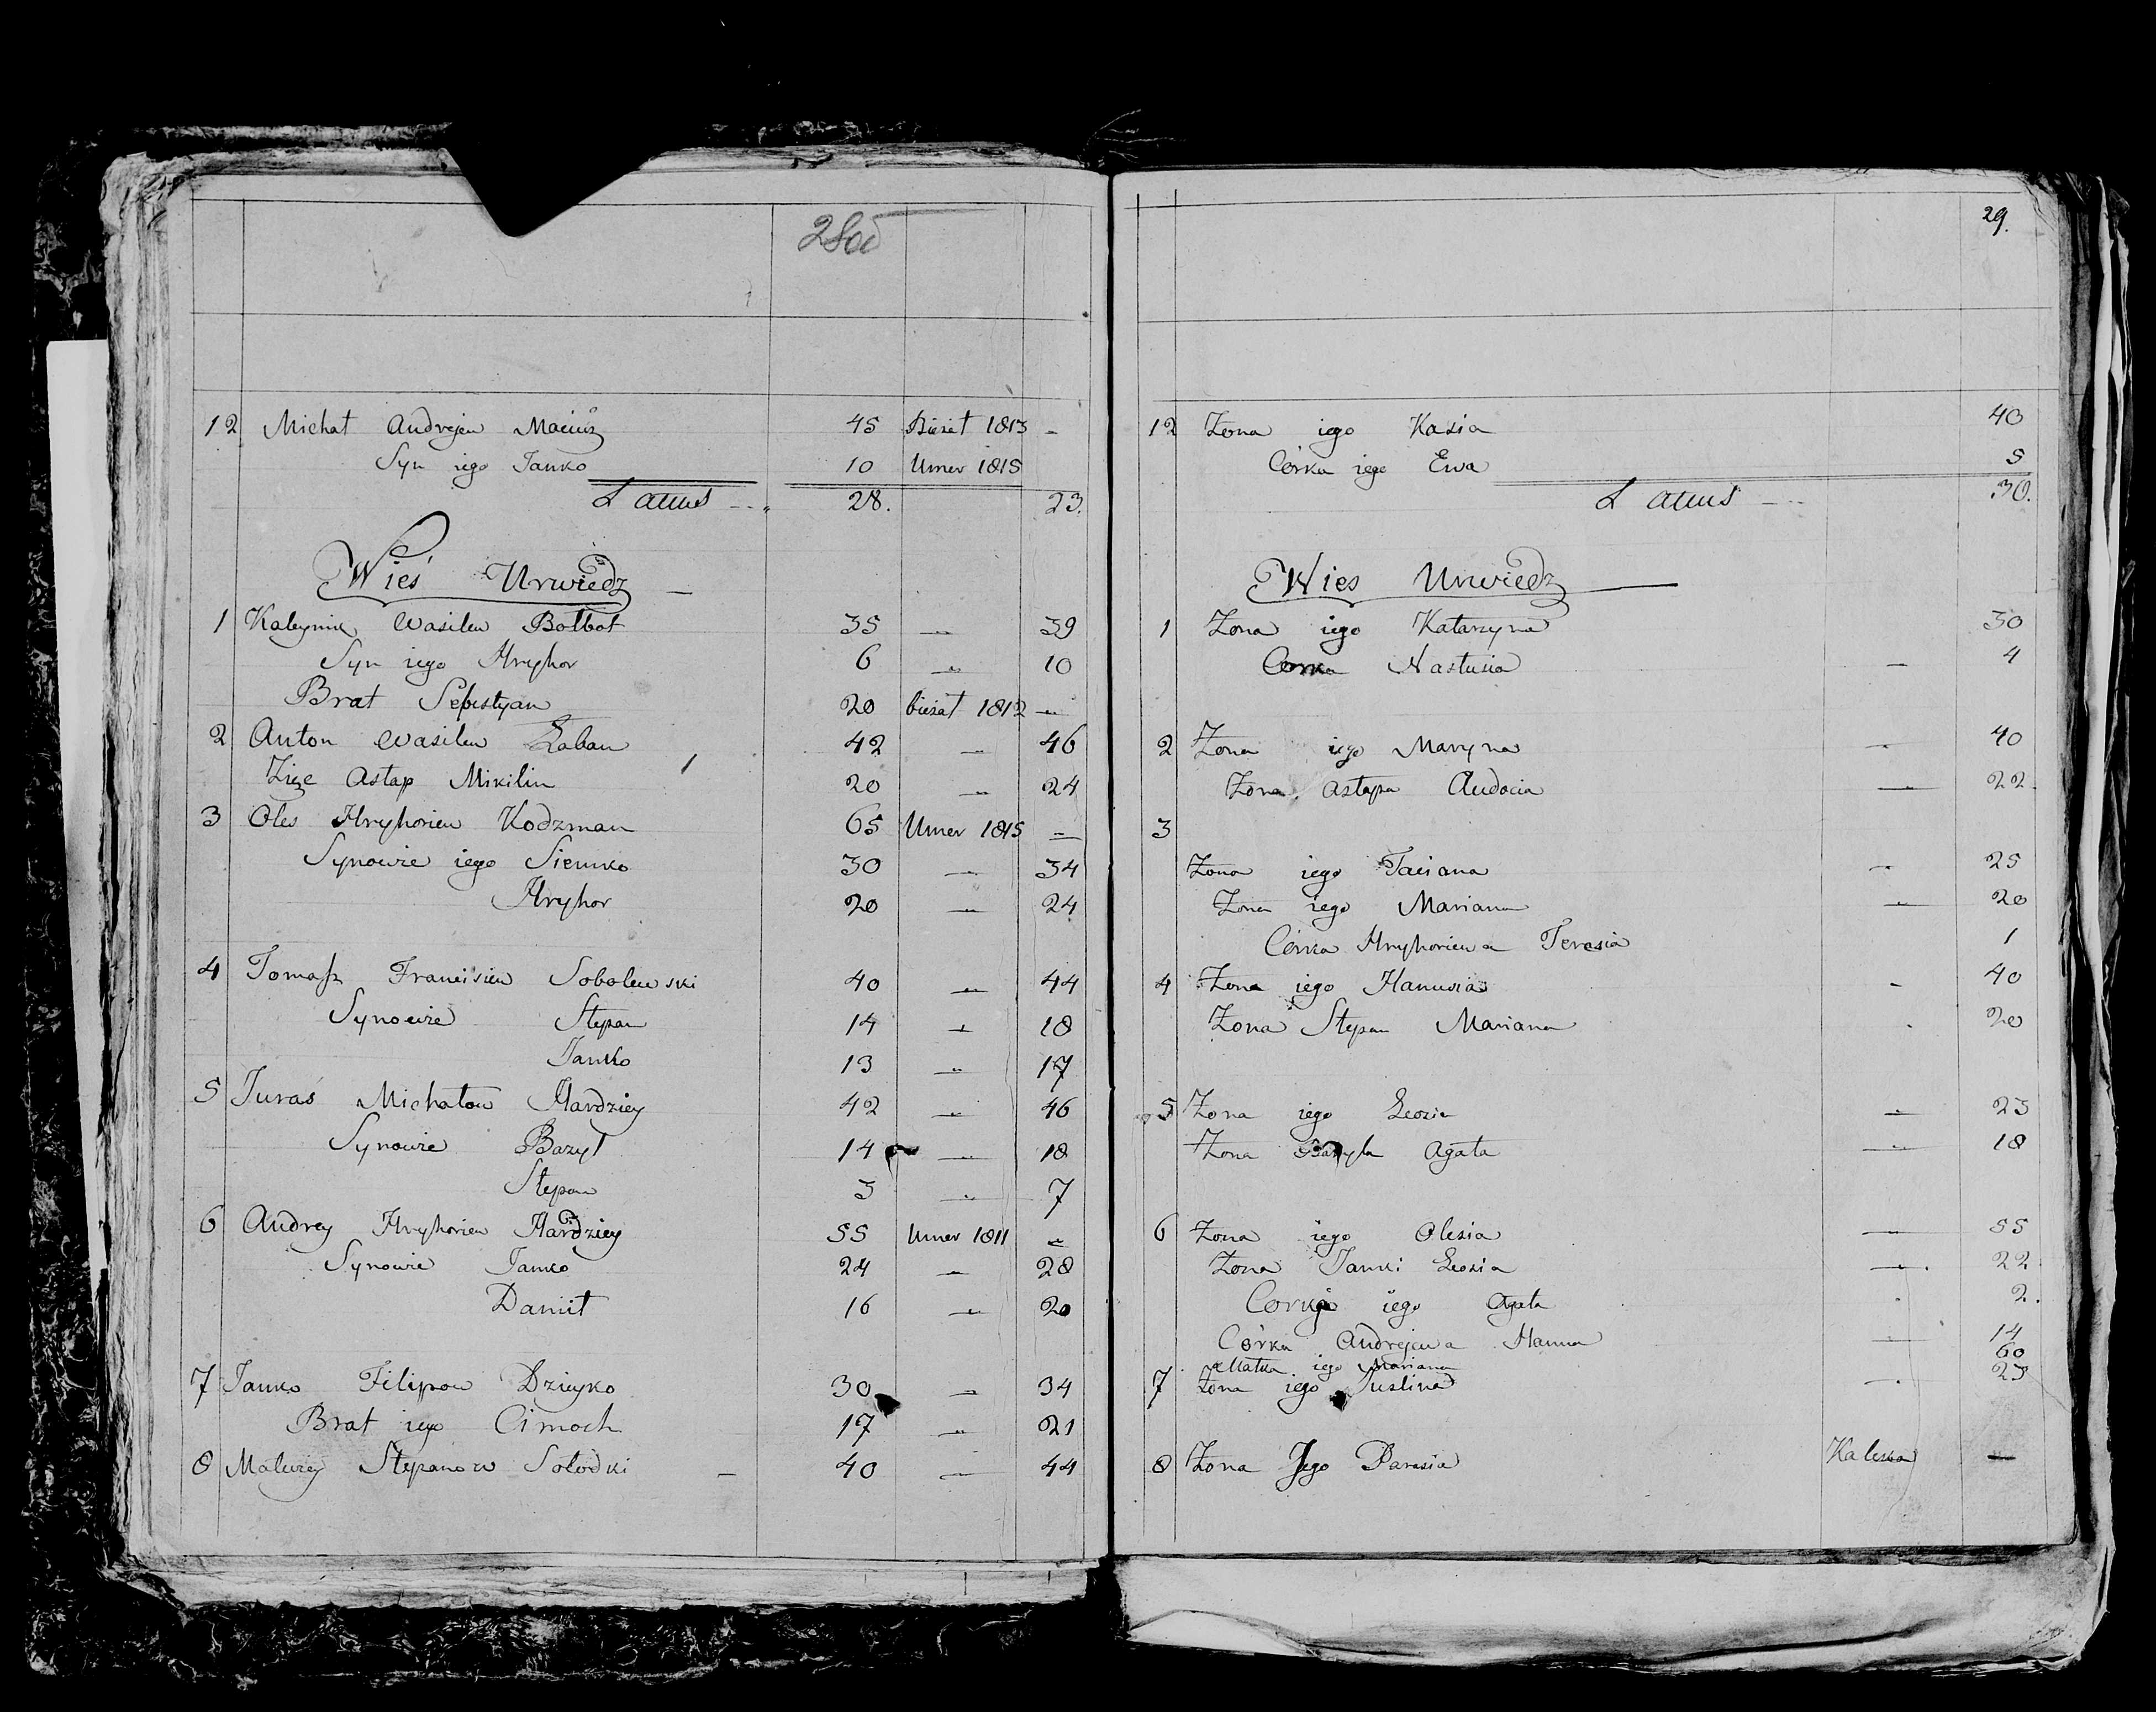 12 Michał Andrejew Maciuz 45 Bieżał 1813 -
Syn iego Janko 10 Umer 1815
Latus 28. 23.
Wieś Urwiedz
1 Kaleynik Wasilew Bołbot 35 — 39
Syn iego Hryhor 6 — 10
Brat Sebestyan 20 bieżał 1812 —
2 Anton Wasilew Łaban 42 — 46
Zięc Astap Mikilin 20 — 24
3 Oles Hryhoriew Kodzman 65 Umer 1815 —
Synowie iego Siemko 30 — 34
Hryhor 20 — 24
4 Tomasz Francisiew Sobolewski 40 — 44
Synowie Stepan 14 — 18
Janko 13 — 17
5 Juraś Michałow Hardziey 42 — 46
Synowie Bazyl 14 — 18
Stepan 3 — 7
6 Andrey Hryhoriew Hardziey 55 Umer 1811 —
Synowie Janko 24 — 28
Danił 16 — 20
7 Janko Filippow Dzieyko 30 — 34
Brat iego Cimoch 17 — 21
8 Matwiey Stepanow Sołodki — 40 — 44
29.
12 Żona iego Kasia 40
Córka iego Ewa 5
Latus 30.
Wies Urwiedz
1 Żona iego Katarzyna 30
Corka Nastusia — 4
2 Żona iego Maryna — 40
Żona Astapa Audocia — 22.
3
Żona iego Taciana — 25
Żona iego Mariana — 20
Córka Hryhoriewa Teresia 1
4 Żona iego Hanusia - 40
Żona Stepan Mariana . 20
5 Żona iego Łozia — 23
Żona Bazyla Agata — 18
6 Żona iego Olesia — 55
Żona Janki Łozia — 22
Corka iego Agata . 2.
Córka Andrejewa Hanna — 14
Matka iego Mariana 60
7 Żona iego Justina — 25
8 Żona Jego Parasia Kaleka —